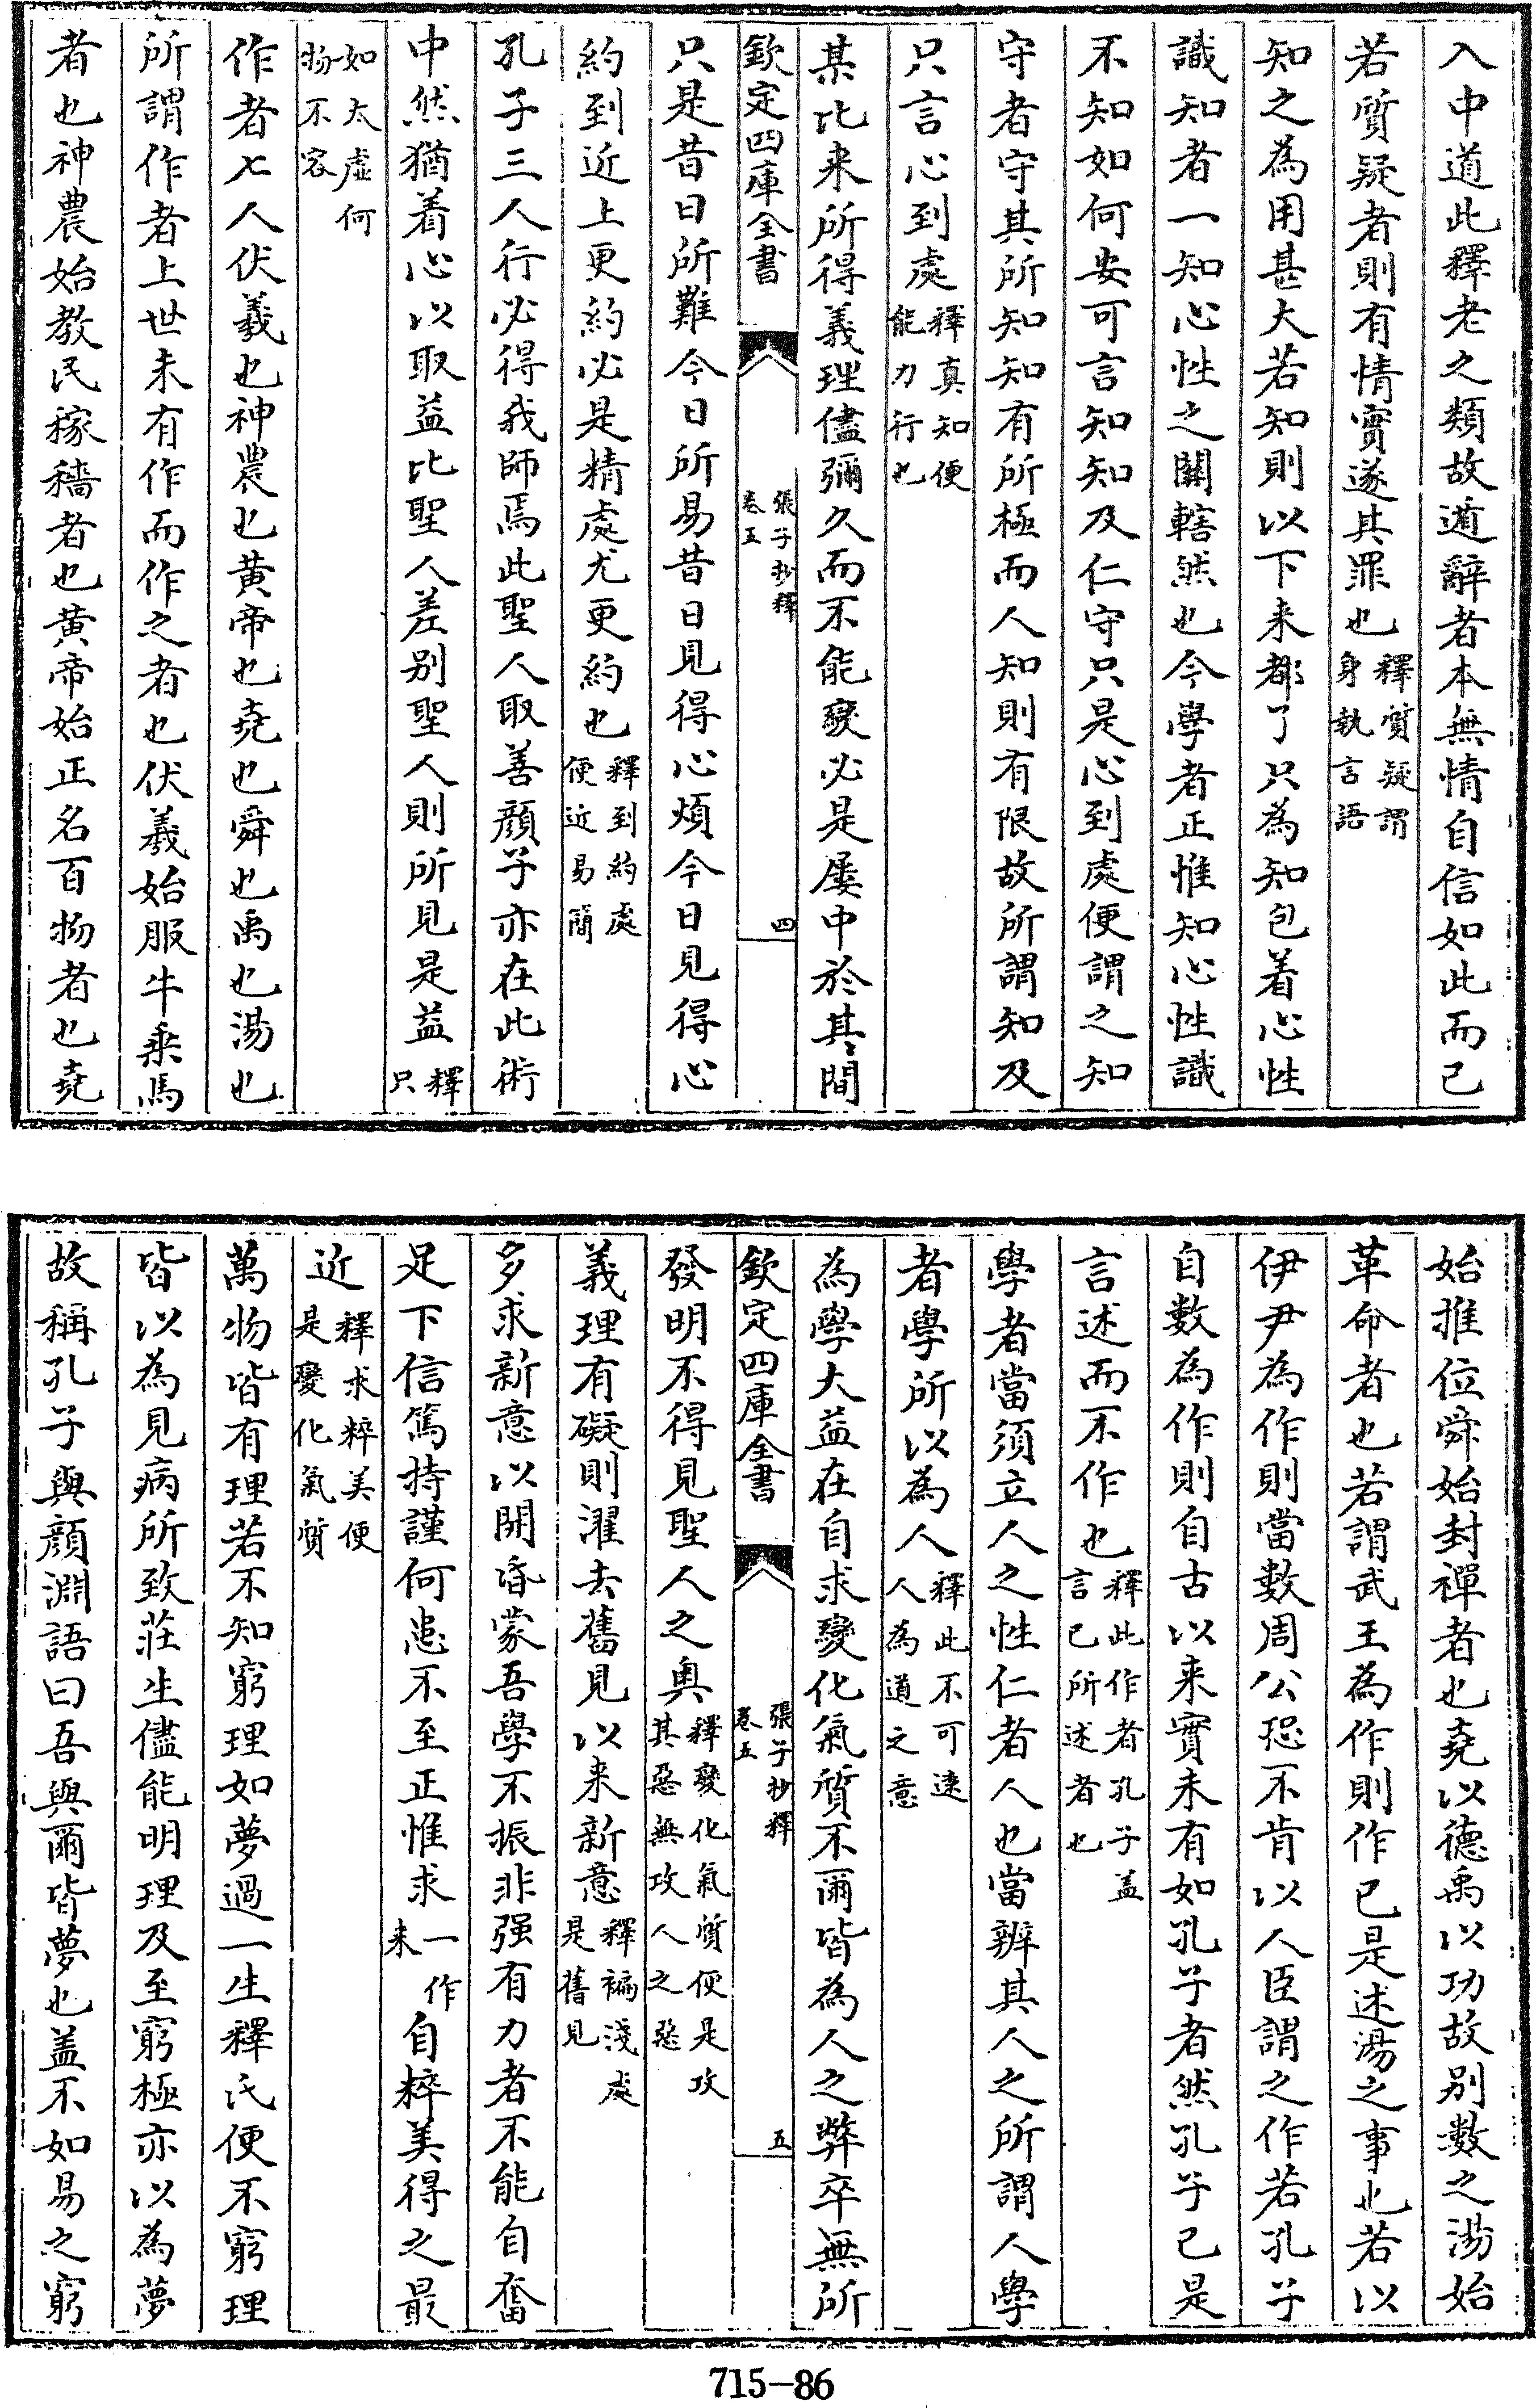 入中道此釋老之類故遁辭者本無情自信如此而已
若質疑者則有情實遂其罪也釋質疑謂身執言語
知之為用甚大若知則以下来都了只為知包着心性
識知者一知心性之關轄然也今學者正惟知心性識
不知如何安可言知知及仁守只是心到處便謂之知
守者守其所知知有所極而人知則有限故所謂知及
只言心到處釋真知便能力行也
某比来所得義理儘彌久而不能變必是屢中於其間
欽定四庫全書
張子抄釋
卷五
四
只是昔日所難今日所易昔日見得心煩今日見得心
約到近上更約必是精處尤更約也釋到約處便近易簡
孔子三人行必得我師焉此聖人取善顔子亦在此術
中然猶着心以取益比聖人差别聖人則所見是益釋只
如太虛何物不容
作者七人伏羲也神農也黄帝也堯也舜也禹也湯也
所謂作者上世未有作而作之者也伏羲始服牛乘馬
者也神農始教民稼穡者也黄帝始正名百物者也堯
始推位舜始封禪者也堯以德禹以功故别數之湯始
革命者也若謂武王為作則作已是述湯之事也若以
伊尹為作則當數周公恐不肯以人臣謂之作若孔子
自數為作則自古以来實未有如孔子者然孔子已是
言述而不作也釋此作者孔子盖言已所述者也
學者當須立人之性仁者人也當辨其人之所謂人學
者學所以為人釋此不可遠人為道之意
為學大益在自求變化氣質不爾皆為人之弊卒無所
欽定四庫全書
張子抄釋
卷五
五
發明不得見聖人之奥釋變化氣質便是攻其惡無攻人之惡
義理有礙則濯去舊見以来新意釋褊淺處是舊見
多求新意以開昏蒙吾學不振非强有力者不能自奮
足下信篤持謹何患不至正惟求一作来自粹美得之最
近釋求粹美便是變化氣質
萬物皆有理若不知窮理如夢過一生釋氏便不窮理
皆以為見病所致莊生儘能明理及至窮極亦以為夢
故稱孔子與顔淵語曰吾與爾皆夢也盖不如易之窮
715-86